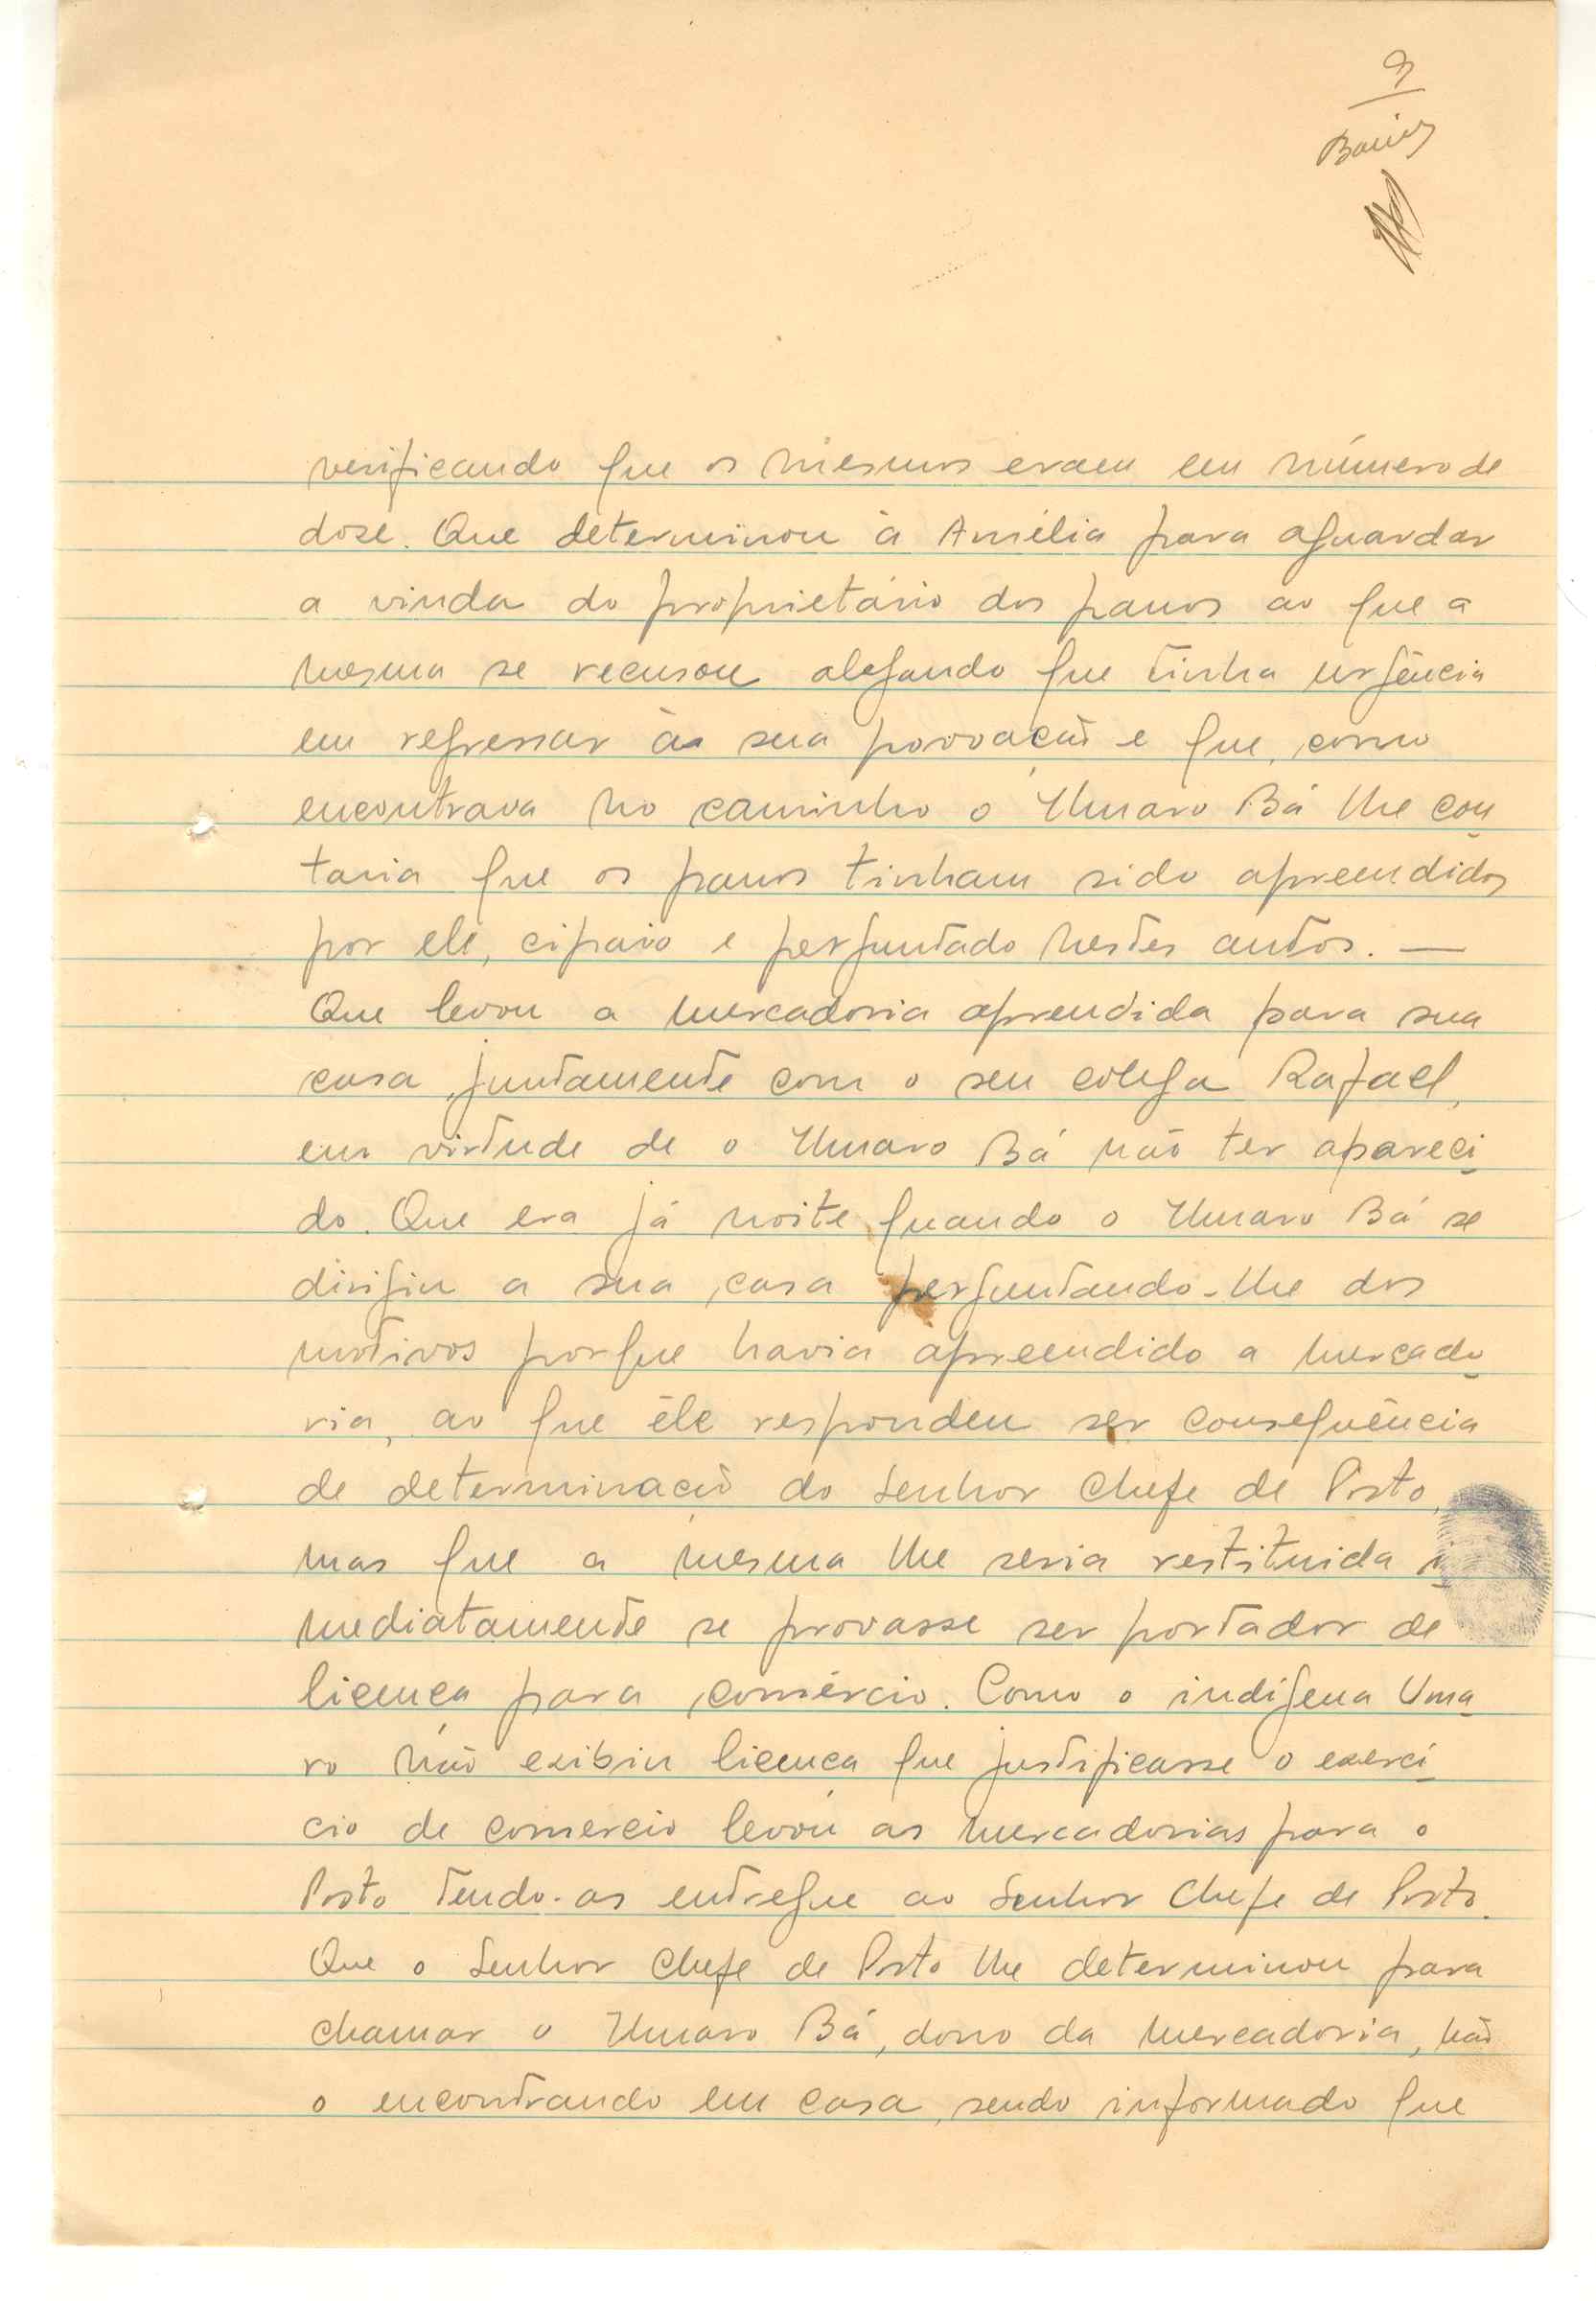 9
verificando que os mesmos eram em número de
doze. Que determinou à Amélia para aguardar
a vinda do proprietário dos panos ao que a
mesma se recusou alegando que tinha urgência
em regressar à sua povoação e que, como
encontrava no caminho o Umaro Bá lhe con
taria que os panos tinham sido apreendidos
por ele, cipaio e perguntado nestes autos. —
Que levou a mercadoria aprendida para sua
casa, juntamente com o seu colega Rafael,
em virtude de o Umaro Bá não ter apareci
do. Que era já noite quando o Umaro Bá se
dirigiu a sua casa perguntando-lhe dos
motivos porque havia apreendido a mercado
ria, ao que êle respondeu ser consequência
de determinação do Senhor Chefe de Posto,
mas que a mesma lhe seria restituida i
mediatamente se provasse ser portador de
licença para comércio. Como o indígena Uma
ro não exibiu licença que justificasse o exercí
cio de comércio levou as mercadorias para o
Posto tendo-as entregue ao Senhor Chefe de Posto.
Que o Senhor Chefe de Posto lhe determinou para
chamar o Umaro Bá, dono da mercadoria, não
o encontrando em casa, sendo informado que